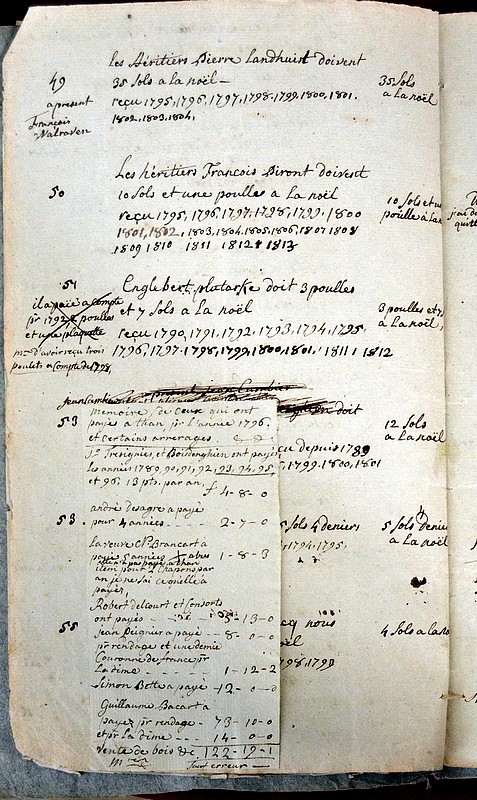 Les Héritiers Pierre Landhuist doivent
49
35 Sols a la noël
35 Sols
a La noël
a present
François
Walraven
reçu 1795, 1796, 1797, 1798, 1799, 1800, 1801.
1802, 1803, 1804,
Les héritiers François Piront doivent
50
10 Sols et une poulles a La noël
10 Sols et un
poulle a La
reçu 1795, 1796, 1797, 1798, 1799, 1800
1801, 1802, 1803, 1804, 1805, 1806, 1807 1808
1809 1810 1811 1812 1813
51
Englebert plataske doit 3 poulles
et 7 Sols a La noël
3 poulles et 7
a La noël,
il a païé a Compte
pr 1792 2 poulles
et une plaquette
reçu 1790, 1791, 1792, 1793, 1794, 1795,
1796, 1797. 1798, 1799, 1800, 1801, 1811, 1812
d'avoir reçu trois
poulets a Compte de 1798
jean Cambier
doit
53
12 Sols
a La noël
memoire, de Ceux qui ont
payés a than, pr L'année 1796.
et Certains arrerages.
cu depuis 1789
5, 1799, 1800, 1801
Tresignies, et Boidenghien ont payés
les années 1789, 90, 91, 92, 93, 94, 95
et 96, 13 pts. par an,
f 4 - 8 - 0
53
andré desagre a payé
pour 4 années - - - - 2 - 7 - 0
5 Sols 4 deniers
5 Sols Denie
a La noël
1794, 1795,
La veuve Brancart a
payé 5 années 1 - 8 - 3
item pour 2 Chapons par
an je ne Sai Ce qu'elle a
payés,
Robert delcourt et Consorts
ont payés - - 5 - 13 - 0
55
Jean Peignier a payé - 8 - 0 - 0
pr rendage et une demie
Couronne de france pr
La dime - - - - 1 - 12 - 2
cq nous
ël
798, 1799
4 Sols a la no
Simon Bette a payé - 12 - 0 - 0
Guillaume Bacart a
payez pr rendage - 73 - 10 - 0
et pr La dime - - 14 - 0 - 0
Vente de bois &c 122 - 19 - 1
Sauf erreur